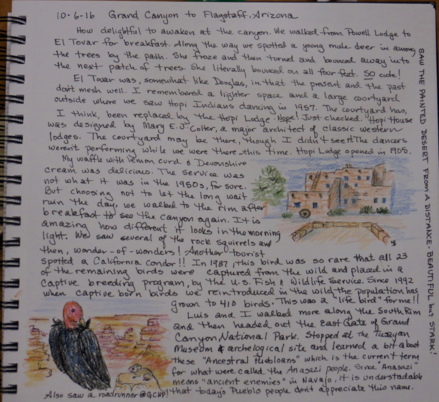 10-6-16 Grand Canyon to Flagstaff, Arizona
How delightful to awaken at the canyon. We walked from Powell Lodge to
El Tovar for breakfast. Along the way we spotted a young mule deer in among
the trees by the path. She froze and then turned and bounced away into
the next patch of trees. She literally bounced on all four feet. SO cute!
El Tovar was, somewhat like Douglas, in that the present and the past
don't mesh well. I remembered a lighter space and a large courtyard
outside where we saw Hopi Indians dancing in 1957. The courtyard has,
I think, been replaced by the Hopi Lodge. Nope! Just checked. Hopi House
was designed by Mary E. J. Colter, a major architect of classic western
lodges. The courtyard may be there, though I didn't see it. The dancers
weren't performing while we were there this time. Hopi Lodge opened in 1905.
My waffle with lemon curd & Devonshire
cream was delicious. The service was
not what it was in the 1950s, for sure.
But choosing not to let the long wait
ruin the day, we walked to the rim after
breakfast to see the canyon again. It is
amazing how different it looks in the morning
light. We saw several of the rock squirrels and
then, wonder-of-wonders! Another tourist
spotted a California Condor!! In 1987, this bird was so rare that all 23
of the remaining birds were captured from the wild and placed in a
captive breeding program, by the U.S. Fish & Wildlife Service. Since 1992
when captive born birds were reintroduced in the wild the population has
grown to 410 birds. This was a "life bird" for me!!
Luis and I walked more along the South Rim
and then headed out the East Gate of Grand
Canyon National Park. Stopped at the Tusayan
Museum & archeological site and learned a bit about
these "Ancestral Puebloans" which is the current term
for what were called the Anasazi people. Since "Anasazi"
means "ancient enemies" in Navajo, it is understandable
that today's Pueblo people don't appreciate this name.
Also saw a roadrunner @ GCNP!
SAW THE PAINTED DESERT FROM A DISTANCE. BEAUTIFUL but STARK!